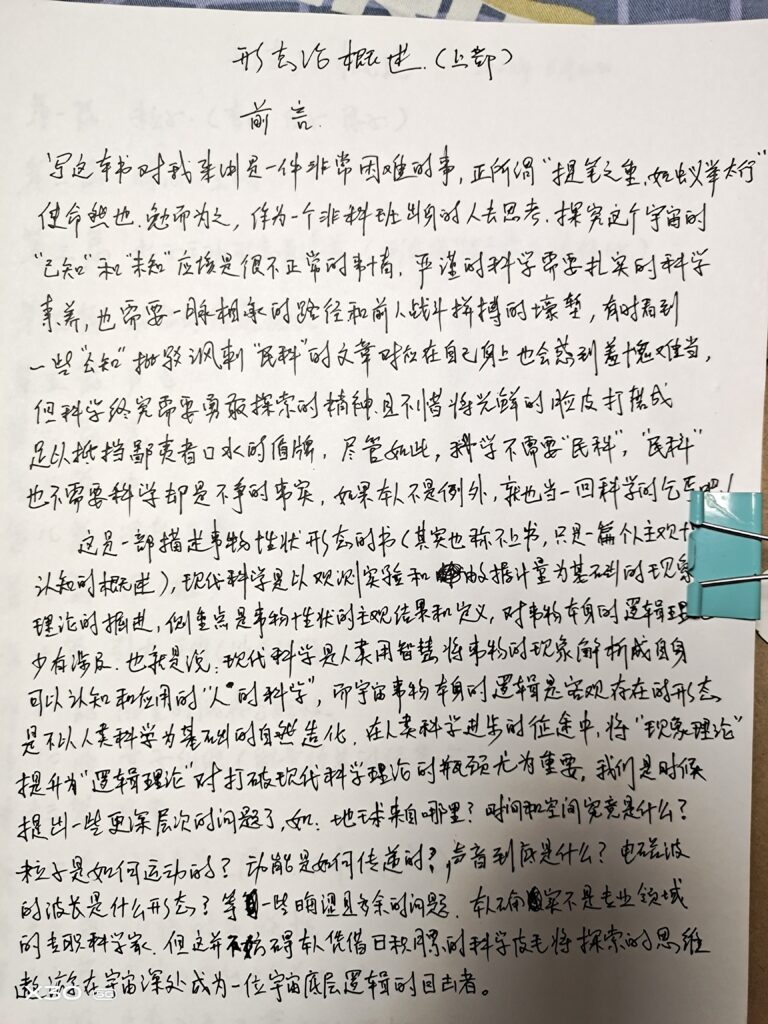 形态论概述.(上部)
前言.
写这本书对我来讲是一件非常困难的事,正所谓“提笔之重,如蚁举太行”
使命然也.勉而为之,作为一个非科班出身的人去思考.探究这个宇宙的
“已知”和“未知”应该是很不正常的事情,严谨的科学需要扎实的科学
素养,也需要一脉相承的路径和前人战斗拼搏的壕堑,有时看到
一些“公知”抛驳讽刺“民科”的文章对应在自己身上也会感到羞愧难当,
但科学终究需要勇敢探索的精神.且不惜将光鲜的脸皮打磨成
足以抵挡鄙夷者口水的盾牌,尽管如此,科学不需要“民科”,“民科”
也不需要科学却是不争的事实,如果本人不是例外,就也当一回科学的乞丐吧!
这是一部描述事物性状形态的书(其实也称不上书,只是一篇个人主观
认知的概述),现代科学是以观测实验和数据计量为基础的现象
理论的推进,侧重点是事物性状的主观结果和定义,对事物本身的逻辑理
少有涉及.也就是说:现代科学是人类用智慧将事物的现象解析成自身
可以认知和应用的“人的科学”,而宇宙事物本身的逻辑是客观存在的形态
是不以人类科学为基础的自然造化.在人类科学进步的征途中,将“现象理论”
提升为“逻辑理论”对打破现代科学理论的瓶颈尤为重要,我们是时候
提出一些更深层次的问题了,如:地球来自哪里?时间和空间究竟是什么?
粒子是如何运动的?动能是如何传递的?,声音到底是什么?电磁波
的波长是什么形态?等一些晦涩且多余的问题.本人确实不是专业领域
的专职科学家.但这并不妨碍本人凭借日积月累的科学皮毛将探索的思维
遨游在宇宙深处成为一位宇宙底层逻辑的目击者。